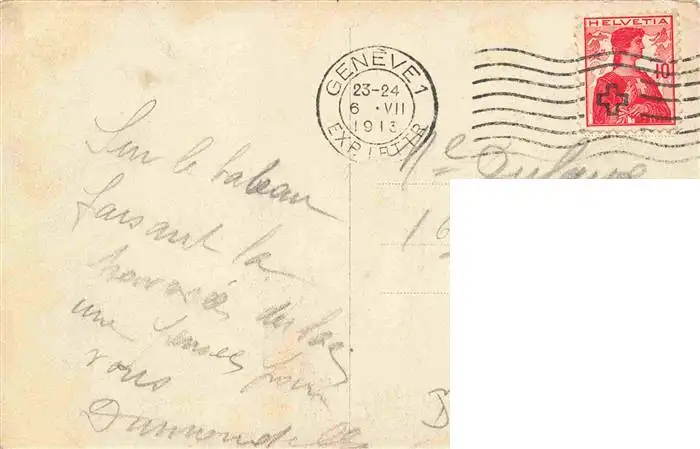 HELVETIA
10
GENÈVE 1
23-24
6 · VII
1913
EXP. LETTR.
Sur le bateau
faisant la
traversée du lac
une pensée pour
vous
Mc
16
D